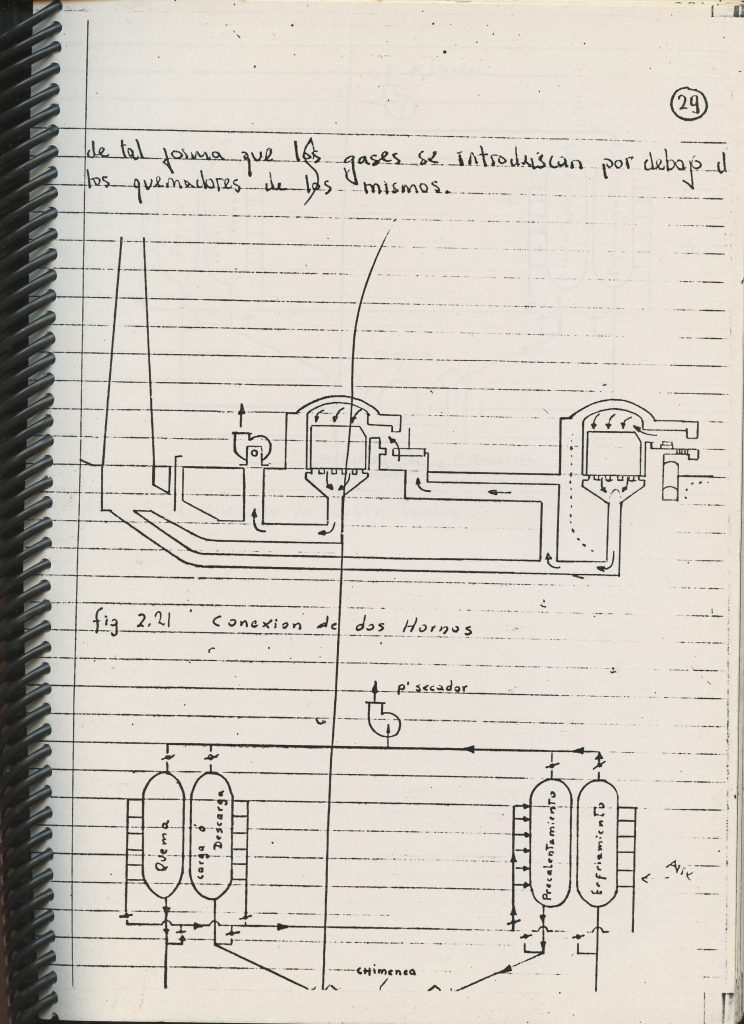 29
de tal forma que los gases se introduscan por debajo d
los quemadores de los mismos.
fig 2.21 Conexion de dos Hornos
p' secador
Quema
carga ó
Descarga
Precalentamiento
Enfriamiento
Aire
CHimenea